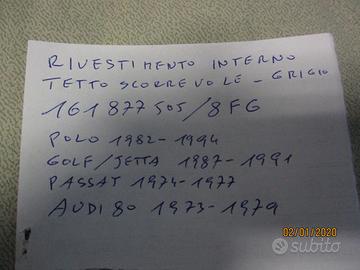 RIVESTIMENTO INTERNO
TETTO SCORREVOLE - GRIGIO
161877505/8FG
POLO 1982-1994
GOLF/JETTA 1987-1991
PASSAT 1974-1977
AUDI 80 1973-1979
02/01/2020
subito